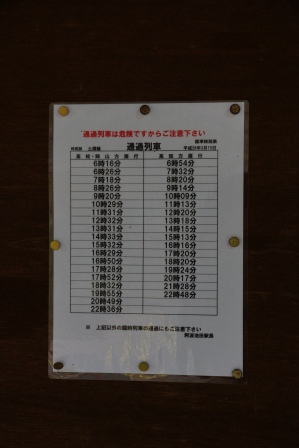 *通過列車は危険ですからご注意下さい
標準時刻表
土讃線 通過列車
高知方面行
6時16分 6時54分
6時26分 7時32分
7時18分 8時20分
8時26分 9時14分
9時20分 10時09分
10時29分 11時13分
11時31分 12時20分
12時32分 13時18分
13時31分 14時15分
14時33分 15時13分
15時32分 16時16分
16時29分 17時20分
16時50分 18時20分
17時28分 18時55分
17時52分 19時24分
18時32分 20時17分
19時55分 21時28分
20時49分 22時48分
22時36分
※ 上記以外の臨時列車の通過にもご注意下さい
阿波池田駅長